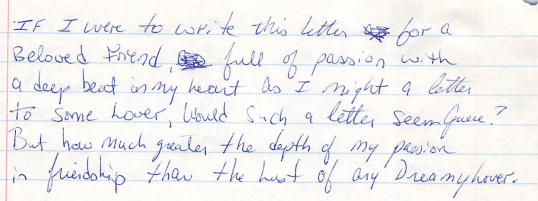 IF I were to write this letter for a
Beloved Friend, full of passion with
a deep beat in my heart as I might a letter
to some Lover, Would Such a letter seem Queue?
But how much greater the depth of my passion
in friendship than the Lust of any Dreamy Lover.